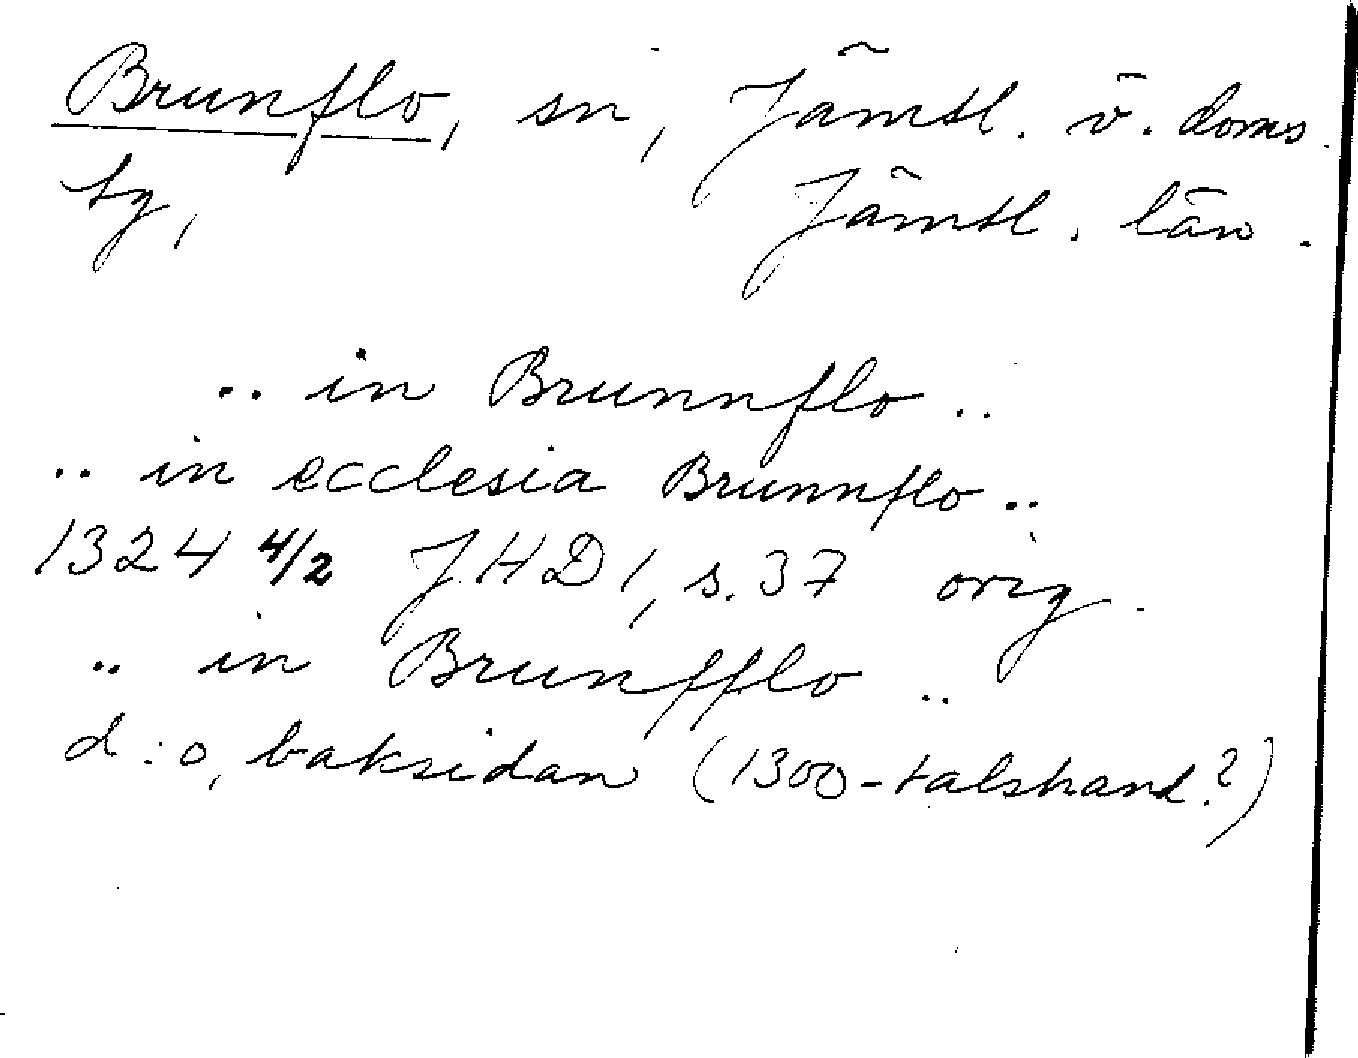 Brunflo, sn, Jämtl. ö. doms.
tg, Jämtl. län.
.. in Brunnflo ..
.. in ecclesia Brunnflo ..
1324 4/2 J.H D 1, s. 37 orig.
.. in Brunfflo ..
d:o, baksidan (1300-talshand?)